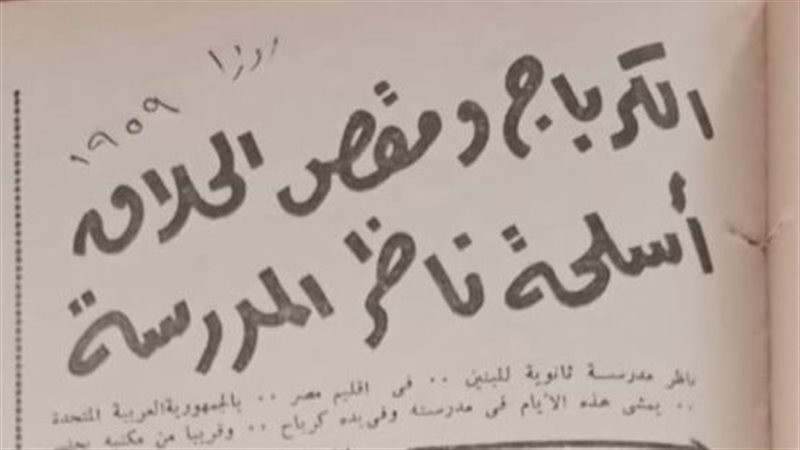 روزا
١٩٥٩
الكرباج ومقص الحلاق
أسلحة ناظر المدرسة
ناظر مدرسة ثانوية للبنين .. فى اقليم مصر .. بالجمهورية العربية المتحدة
.. يمشى هذه الأيام فى مدرسته وفى يده كرباج .. وقريبا من مكتبه يجلس